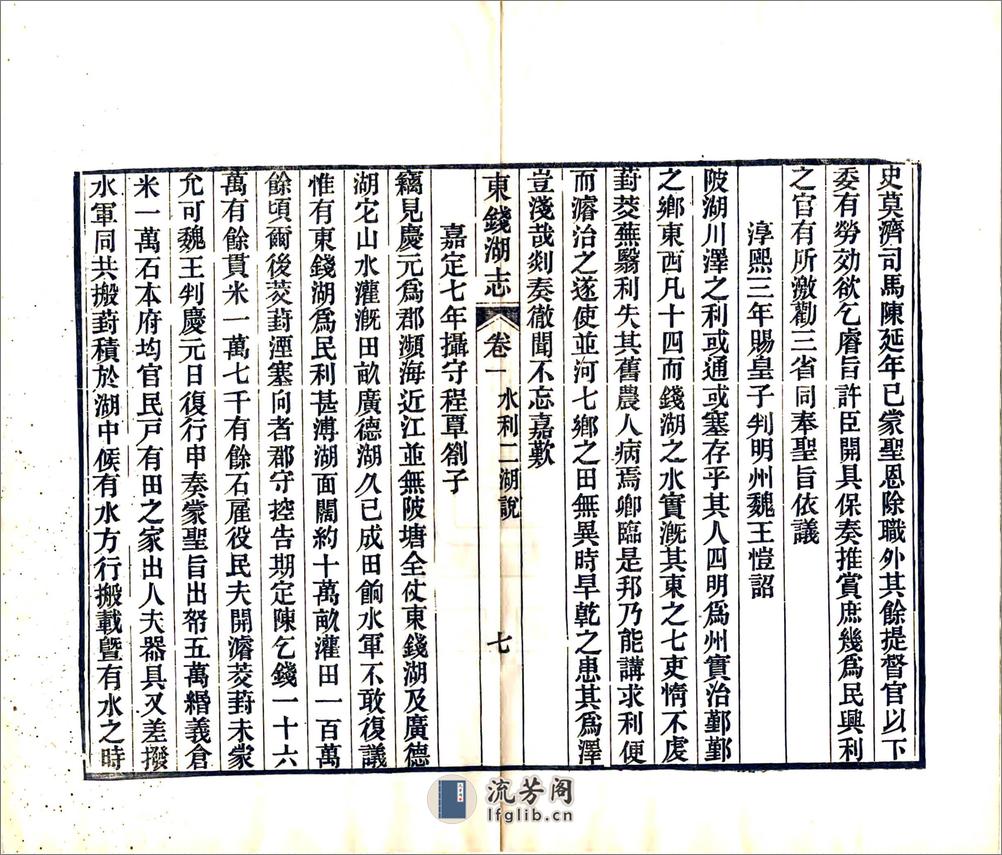 史莫濟司馬陳延年已蒙聖恩除職外其餘提督官以下
委有勞効欲乞睿旨許臣開具保奏推賞庶幾爲民興利
之官有所激勸三省同奉聖旨依議
淳熙三年賜皇子判明州魏王愷詔
陂湖川澤之利或通或塞存乎其人四明爲州實治鄞鄞
之鄉東西凡十四而錢湖之水實漑其東之七吏惰不虔
葑茭蕪翳利失其舊農人病焉卿臨是邦乃能講求利便
而濬治之遂使並河七鄉之田無異時旱乾之患其爲澤
豈淺哉剡奏徹聞不忘嘉歎
東錢湖志 卷一 水利二湖說 七
嘉定七年攝守程覃劄子
竊見慶元爲郡瀕海近江並無陂塘全仗東錢湖及廣德
湖它山水灌漑田畝廣德湖久已成田餉水軍不敢復議
惟有東錢湖爲民利甚溥湖面闊約十萬畝灌田一百萬
餘頃爾後茭葑湮塞向者郡守控告期定陳乞錢一十六
萬有餘貫米一萬七千有餘石雇役民夫開濬茭葑未蒙
允可魏王判慶元日復行申奏蒙聖旨出帑五萬緡義倉
米一萬石本府均官民戸有田之家出人夫器具又差撥
水軍同共搬葑積於湖中候有水方行搬載曁有水之時
流芳阁
lfglib.cn